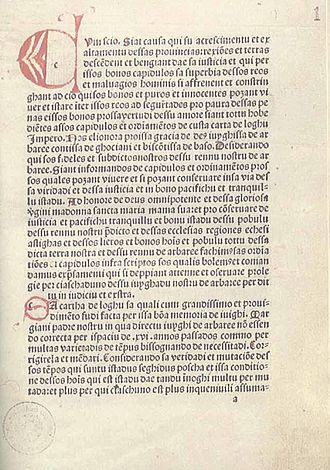 1
Cum scio. Siat causa qui su acrescimentu et ex
altamentu dessas prouincias rexiões et terras
descendent et bengiant dae sa iusticia et qui per
issos bonos capidulos sa superbia dessos reos
et maluagios hominis si affrenent et constrin
ghant ad cio qui sos bonos et puros et innocentes pozant vi
uer et istare iter issos reos ad segurtades pro paura dessas pe
nas et issos bonos pro sa vertudi dessu amore siant tottu hobe
diẽtes assos capidulos et ordiamẽtos de custa carta de loghu
Impero. Nos elionora prossa gracia de deus iuyghissa de ar
baree comissa de ghociani et biscõtissa de baso. Desiderando
qui sos fideles et subdictos nostros dessu rennu nostru de ar
baree siant informandos de capidulos et ordinamẽtos pros
sos quales pozant viuere et si pozant conseruare in sa via des
sa viridadi et dessa iusticia et in bono pacifichu et tranquil
lu istadu. Ad honore de deus omnipotente et dessa gloriosa
virgini madonna sancta maria mama sua et pro cõseruare sa
iusticia et pacifichu tranquillu et bonu istadu dessu pobulu
dessu rennu nostru predicto et dessas ecclesias regiones echesi
astighas et dessos lieros et bonos hois et pobulu tottu dessa
dicta terra nostra et dessu rennu de arbaree fachimus sas ordia
tiões et capidulos infra scriptos sos qualis bolemus et coman
damus expsamenti qui si deppiant attenne et oseruare pro leghe
per ciaschadunu dessu iuyghadu nostru de arbaree per dit
tu in iudiciu et extra.
Sa cartha de loghu sa quali cum grandissimo et proui
dimẽto fudi facta per issa bõa memoria de iuighi. Mar
giani padre nostru in qua directu iuyghi de arbaree nõ essen
do correcta per ispaciu de .xvi. annos passados commo per
multas varietadis de tẽpus bisognando de necessitadi. Cor
rigirela et mẽdari. Considerando sa veridadi et mutaciõe des
sos tẽpos qui suntu istadus seghidus poscha et issa conditio
ne dessos hois qui est istadu dae tandu inoghi multu per mu
tada: et plus per qui ciaschuno est plus inqueniuili assuma-
a